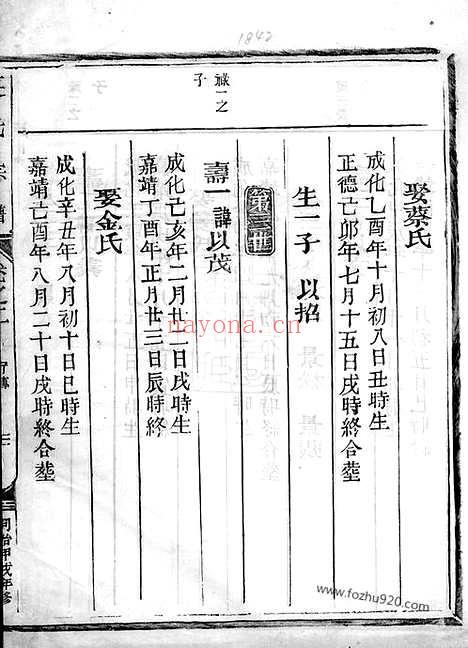 1842
娶蔡氏
成化乙酉年十月初八日丑時生
正德己卯年七月十五日戌時終合塟
生一子 以招
第三世
祿一之
子
壽一諱以茂
成化己亥年二月廿二日戌時生
嘉靖丁酉年正月廿三日辰時終
娶金氏
成化辛丑年八月初十日巳時生
嘉靖己酉年八月二十日戌時終合塟
氏宗譜
三
同治甲戌年修
nayona.cn
www.fozhu920.com